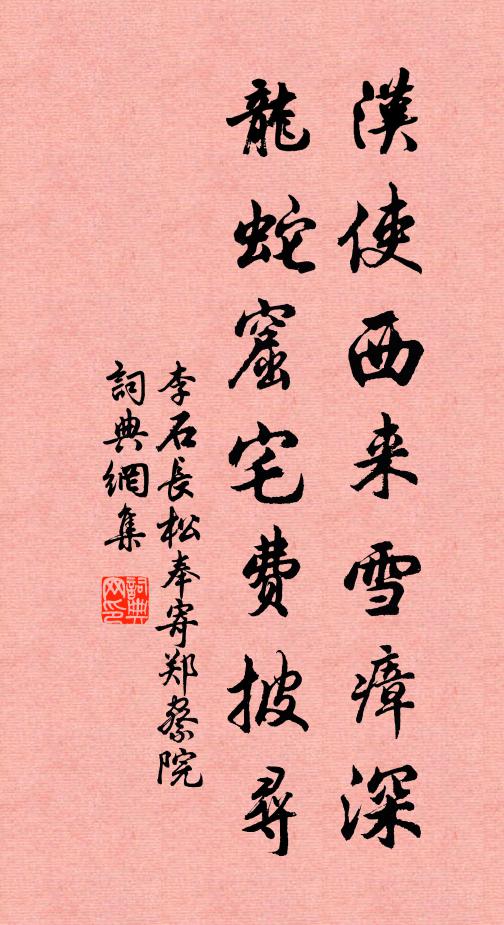 漢使西来雪瘴深
龍蛇窟宅費披尋
李石長松奉寄郑察院
詞典網集
詞典網印